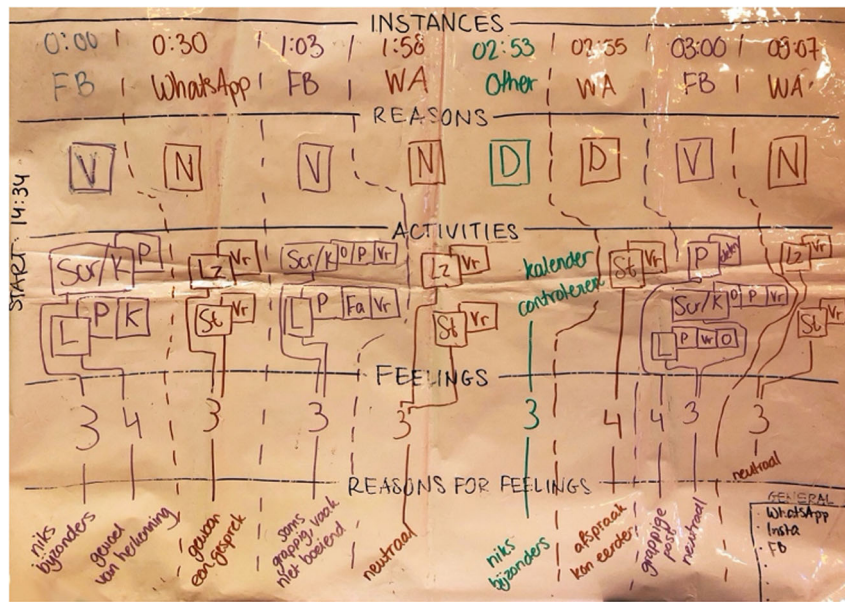 INSTANCES
0:00 0:30 1:03 1:58 02:53 02:55 03:00 03:07
FB WhatsApp FB WA Other WA FB WA
REASONS
V N V N D D V N
START: 14:34
ACTIVITIES
Scr/K P Lz Vr Scr/K O/P Vr Lz Vr kalender controleren St Vr P Lz Vr
L P K St Vr L P Fa Vr St Vr Scr/K O P Vr St Vr
L P Vr O
FEELINGS
3 4 3 3 3 3 4 4 3 3
REASONS FOR FEELINGS
niks bijzonders
gevoel van herkenning
gewoon een gesprek
soms grappig, vaak niet boeiend
neutraal
niks bijzonders
afspraak kan eerder
grappige post
neutraal
neutraal
GENERAL
WhatsApp
Insta
FB